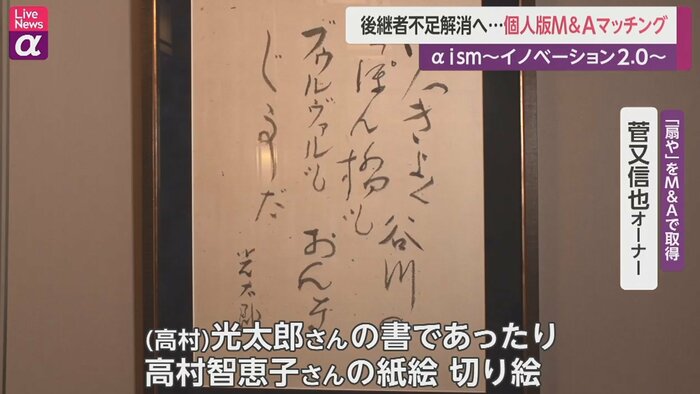 Live News
α
後継者不足解消へ…個人版M&Aマッチング
αism～イノベーション2.0～
「扇や」をM&Aで取得
菅又信也オーナー
つきよく谷川の
つぽん橋も
ブゥルヴァルも おんな
じようだ
光太郎
(高村)光太郎さんの書であったり
高村智恵子さんの紙絵 切り絵